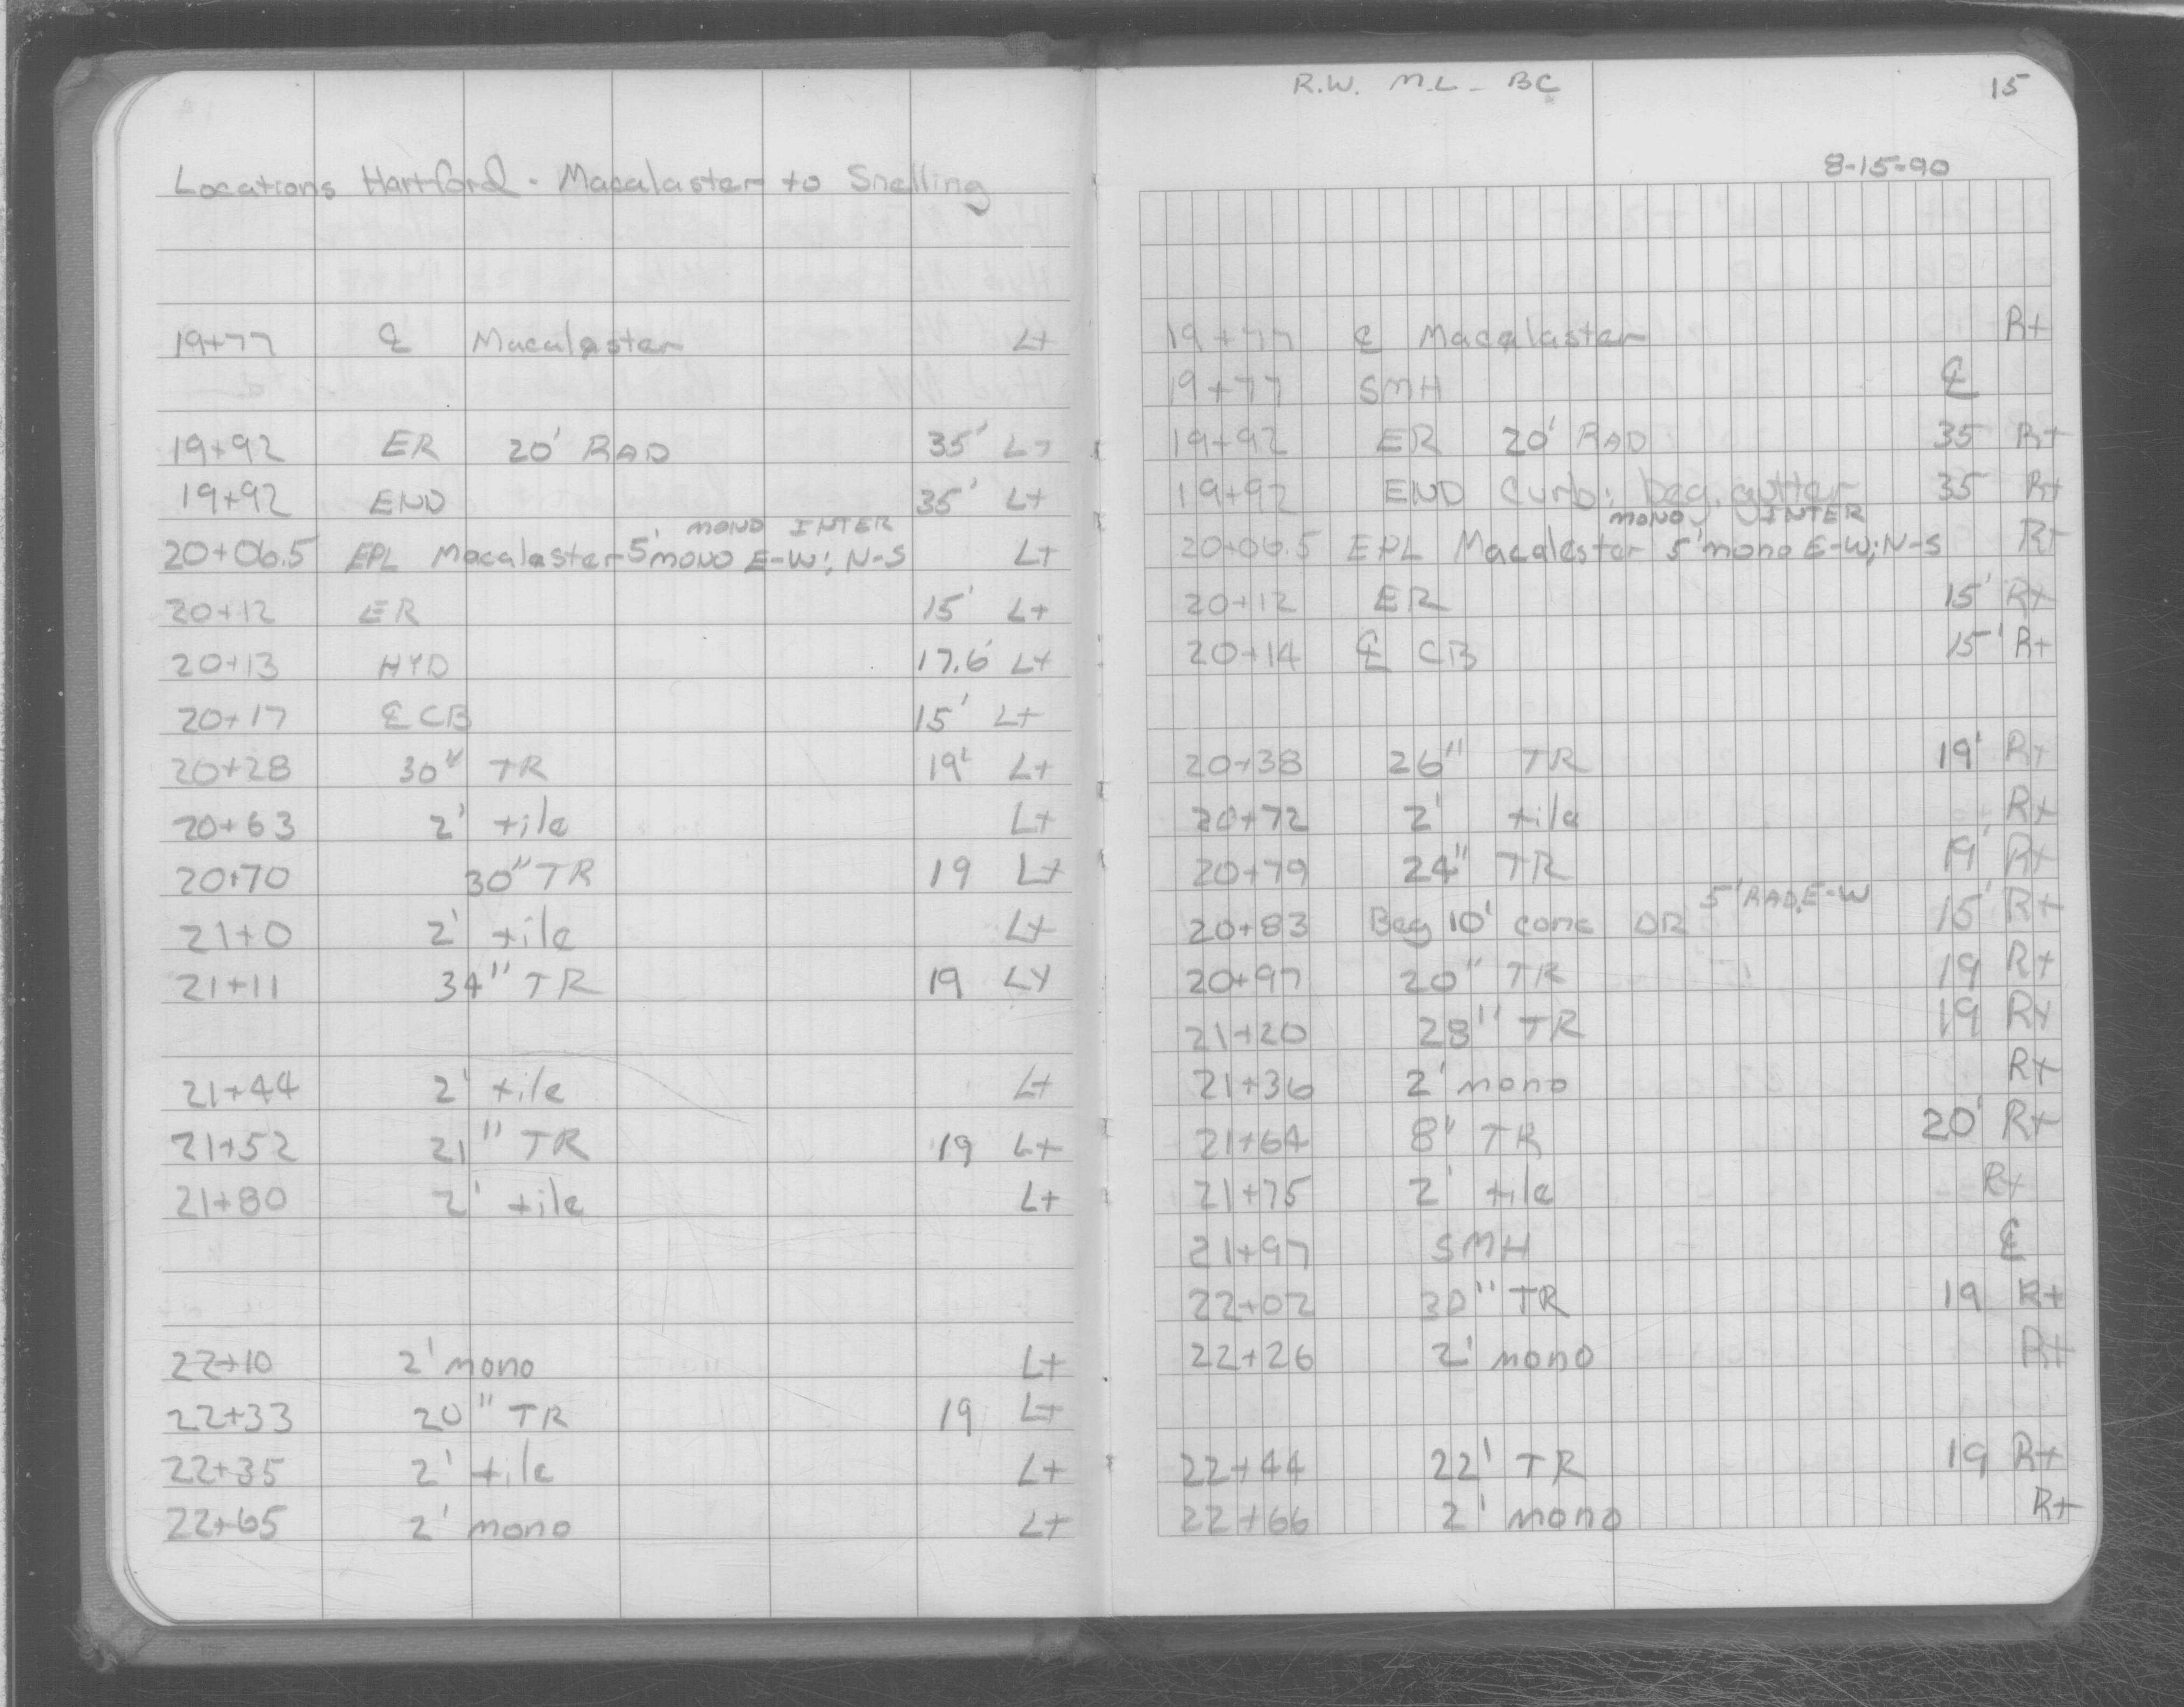 Locations Hartford - Macalaster to Snelling
19+77 ℄ Macalaster Lt
19+92 ER 20' RAD 35' Lt
19+92 END 35' Lt
MONO INTER
20+06.5 EPL Macalaster 5' MONO E-W; N-S Lt
20+12 ER 15' Lt
20+13 HYD 17.6' Lt
20+17 ℄ CB 15' Lt
20+28 30" TR 19' Lt
20+63 2' tile Lt
20+70 30" TR 19 Lt
21+0 2' tile Lt
21+11 34" TR 19 Lt
21+44 2' tile Lt
21+52 21" TR 19 Lt
21+80 2' tile Lt
22+10 2' mono Lt
22+33 20" TR 19 Lt
22+35 2' tile Lt
22+65 2' mono Lt
R.W. M.L - BC 15
8-15-90
19+77 ℄ Macalaster Rt
19+77 SMH ℄
19+92 ER 20' RAD 35 Rt
19+92 END Curb; beg. gutter 35 Rt
MONO INTER
20+06.5 EPL Macalester 5' mono E-W; N-S Rt
20+12 ER 15' Rt
20+14 ℄ CB 15' Rt
20+38 26" TR 19' Rt
20+72 2' tile Rt
20+79 24" TR 19' Rt
20+83 Beg 10' conc DR 5' RAD. E-W 15' Rt
20+97 20" TR 19 Rt
21+20 28" TR 19 Rt
21+36 2' mono Rt
21+64 8" TR 20' Rt
21+75 2' tile Rt
21+97 SMH ℄
22+02 30" TR 19 Rt
22+26 2' mono Rt
22+44 22' TR 19 Rt
22+66 2' mono Rt